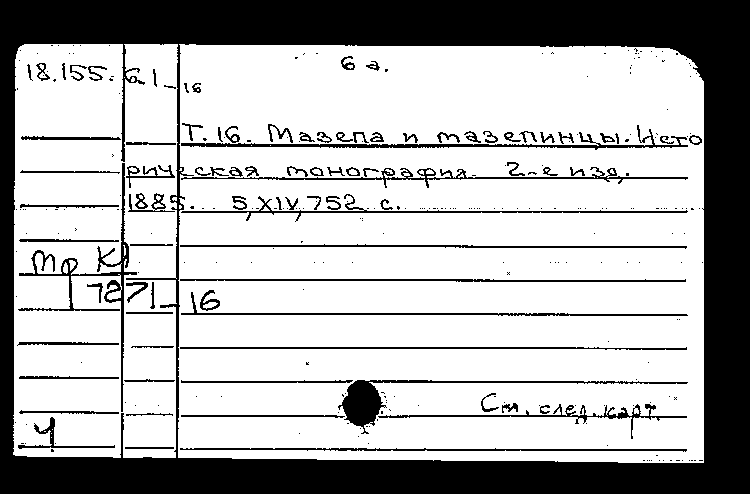 6 а.
18.155.6.1_16
Т.16. Мазепа и мазепинцы. Исто
рическая монография. 2-е изд.
1885. 5, XIV, 752 с.
Мф К1
7271_16
См. след. карт.
Ч